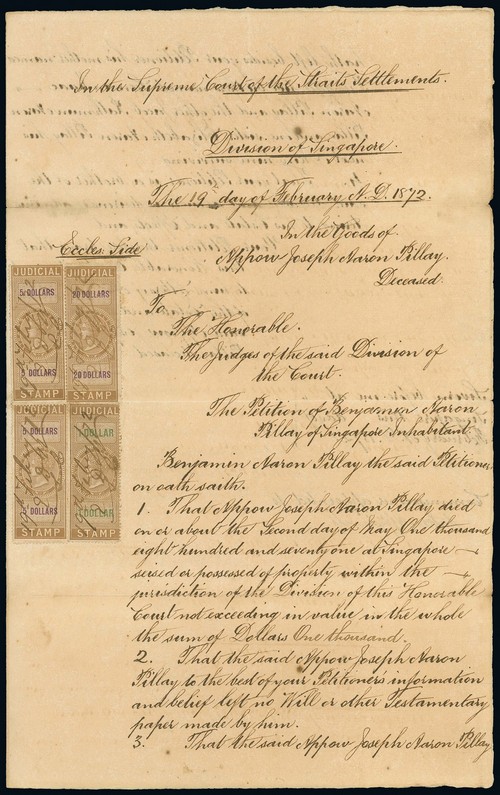 In the Supreme Court of the Straits Settlements.
Division of Singapore.
The 19 day of February A.D. 1872.
Eccles. Side
In the Goods of
Appow Joseph Aaron Pillay.
Deceased.
JUDICIAL
5 DOLLARS
5 DOLLARS
STAMP
JUDICIAL
20 DOLLARS
20 DOLLARS
STAMP
JUDICIAL
5 DOLLARS
5 DOLLARS
STAMP
JUDICIAL
1 DOLLAR
1 DOLLAR
STAMP
To
The Honorable.
The Judges of the said Division of
the Court.
The Petition of Benjamin Aaron
Pillay of Singapore Inhabitant
Benjamin Aaron Pillay the said Petitioner
on oath saith.
1. That Appow Joseph Aaron Pillay died
on or about the Second day of May One thousand
eight hundred and seventy one at Singapore
seised or possessed of property within the
jurisdiction of the Division of this Honorable
Court not exceeding in value in the whole
the sum of Dollars One thousand.
2. That the said Appow Joseph Aaron
Pillay to the best of your Petitioners information
and belief left no Will or other Testamentary
paper made by him.
3. That the said Appow Joseph Aaron Pillay